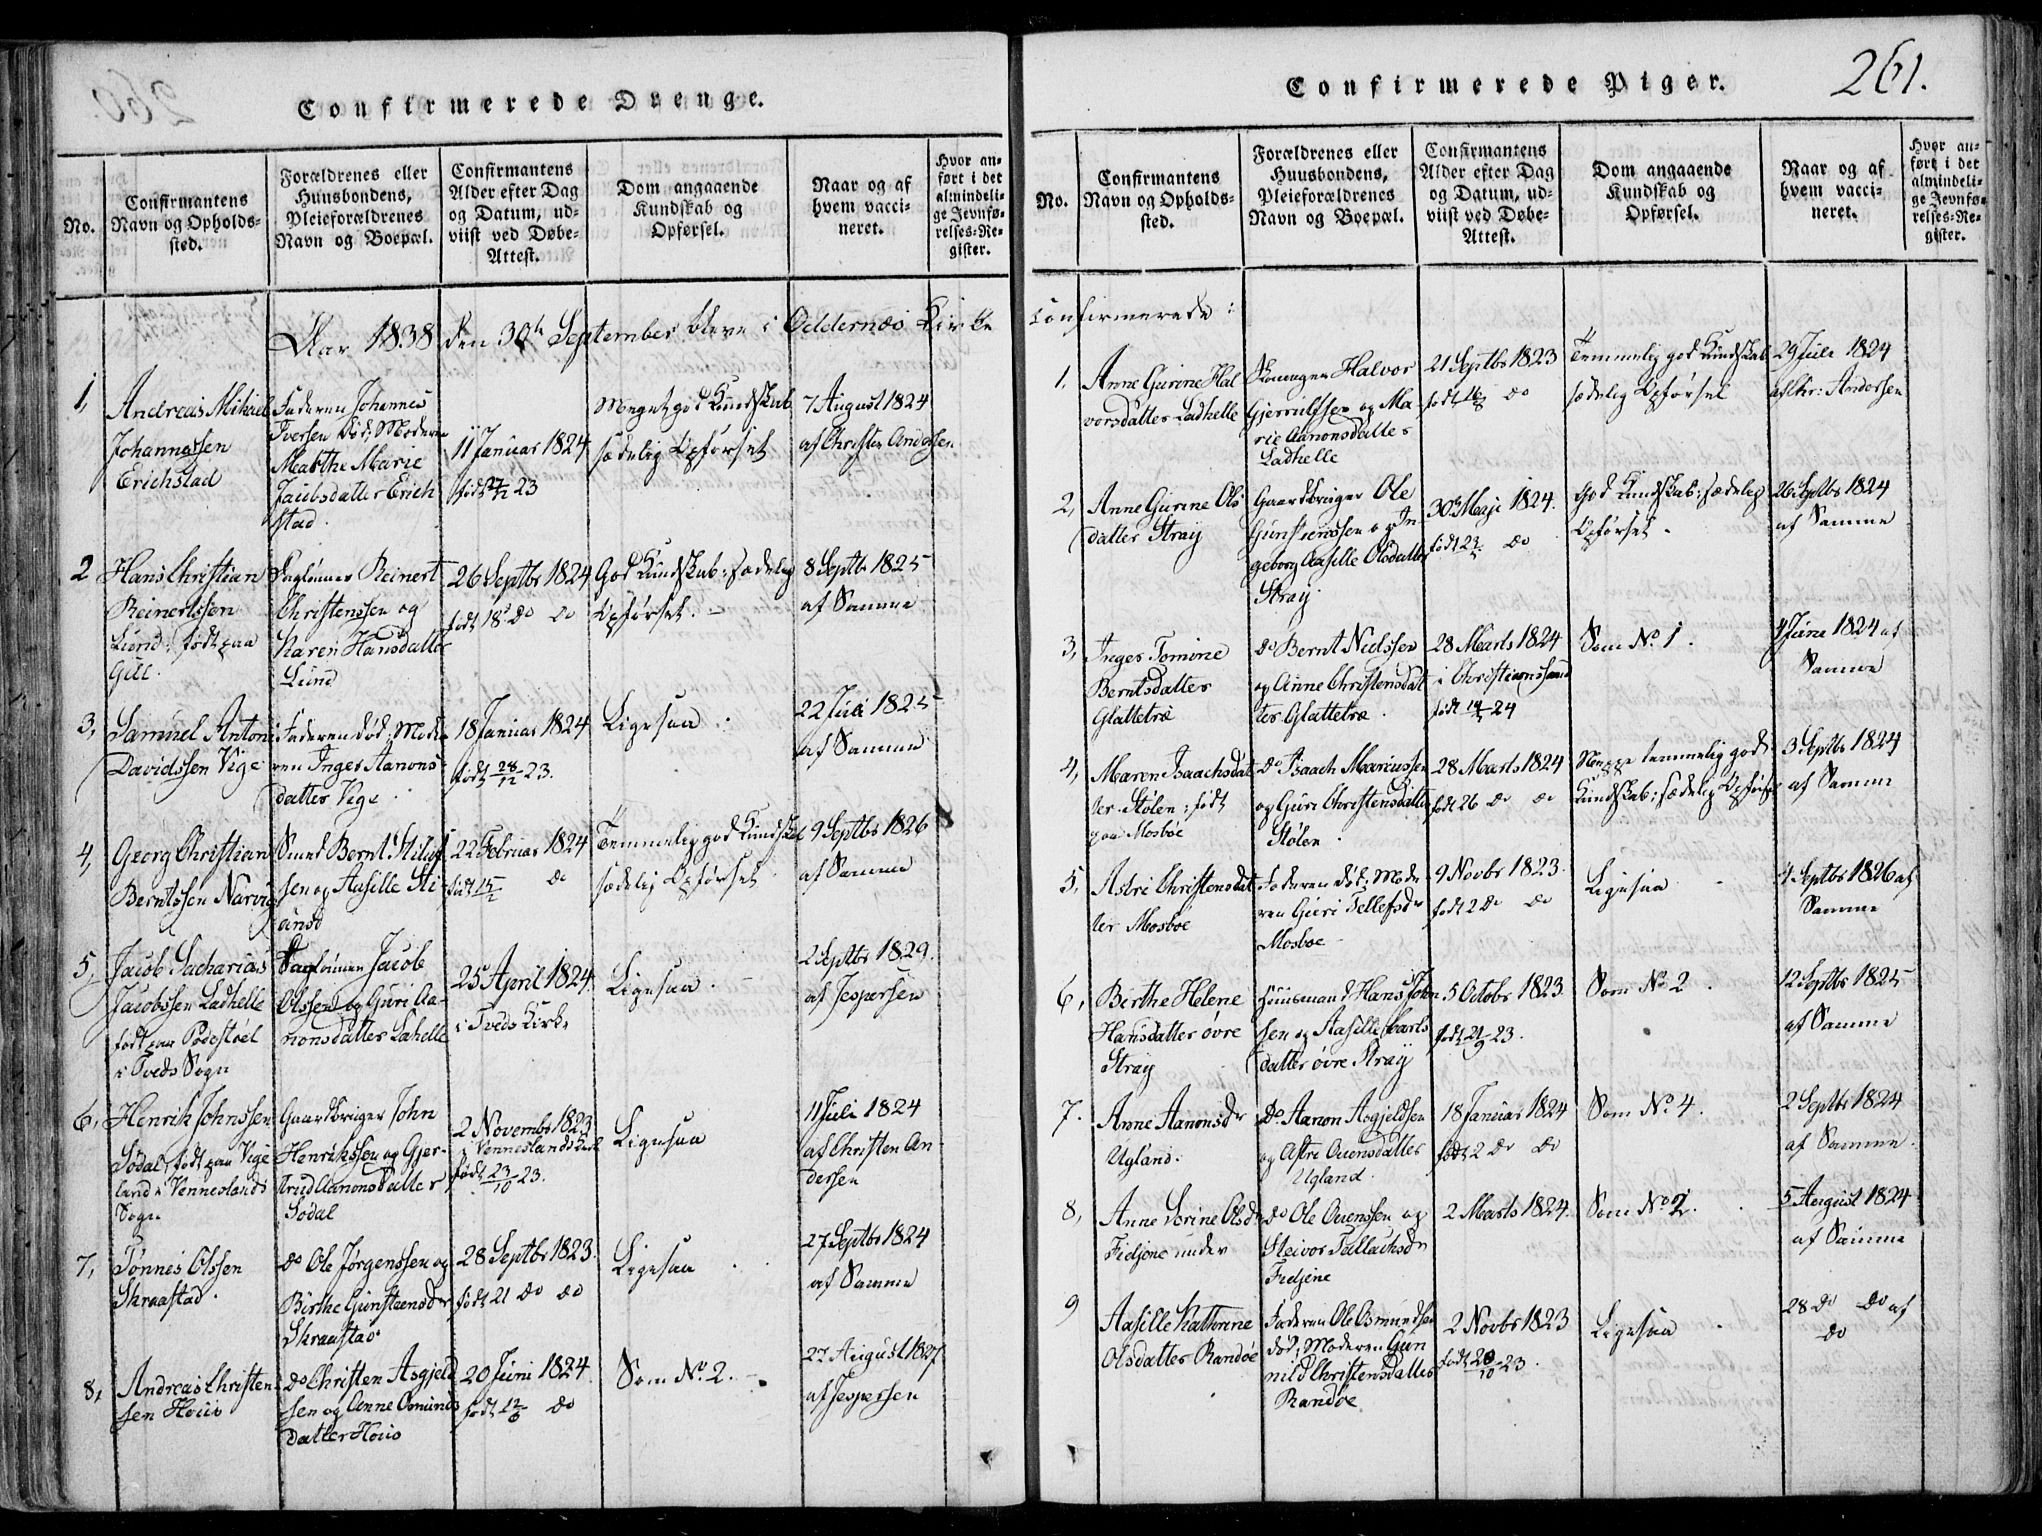 260.
Confirmerede Drenge.
No.
Confirmantens
Navn og Opholds-
sted.
Forældrenes eller
Huusbondens,
Pleieforældrenes
Navn og Boepæl.
Confirmantens
Alder efter Dag
og Datum, ud-
viist ved Døbe-
Attest.
Dom angaaende
Kundskab og
Opførsel.
Naar og af
hvem vacci-
neret.
Hvor an-
ført i det
almindeli-
ge Jevnfø-
relses-Re-
gister.
Aar 1838 den 30te September bleve i Oddernæs Kirke
1,
Andreas Mikael
Johannessen
Erichstad
Faderen Johannes
Iversen død; Moderen
Marthe Marie
Jacobsdatter Erich
stad.
11 Januar 1824
født 27/11 23
Meget god Kundskab
sædelig Opførsel
7 August 1824
af Christen Andersen
2
Hans Christian
Reinertssen
Lund; født paa
Gill.
Daglønner Reinert
Christenssen og
Karen Hansdatter
Lund
26 Septbr 1824
født 18 do do
God Kundskab; sædelig
Opførsel. -
8 Septbr 1825
af Samme
3,
Samuel Antoni
Davidssen Vige
Faderen død; Mode
ren Inger Aanons
datter Vige
18 Januar 1824
født 28/12 23.
Ligesaa
22 Juli 1825
af Samme
4,
Georg Christian
Berntssen Narvig
Smed Bernt
sen og Aasille Sti-
ansd
22 Februar 1824
født 15/2 do
Temmelig god Kundskab
sædelig Opførsel
9 Septbr 1826
af Samme
5,
Jacob Sacharias
Jacobssen Ladhelle
født paa Podestøel
i Tveds Sogn
Daglønner Jacob
Olssen og Guri Aa-
nonsdatter Lahelle
25 April 1824
i Tveds Kirke
Ligesaa
2 Septbr 1829.
af Jespersen
6,
Henrik Johnssen
Sødal, født paa Vige
land i Venneslands
Sogn
Gaardbruger John
Henrikssen og Gjer-
trud Aanonsdatter
Sødal
2 Novembr 1823
i Venneslands Kirke
født 23/10 23.
Ligesaa
11 Juli 1824
af Christen An-
dersen
7,
Tønnes Olssen
Skraastad.
do Ole Jørgenssen og
Birthe Gunsteensdr
Skraastad
28 Septbr 1823.
født 21 do do
Ligesaa
27 Septbr 1824
af Samme
8,
Andreas Christen
sen Hous
do Christen Asgjeld
sen og Anne Osmunds
datter Hous
20 Juni 1824
født 12/6 do
Som No 2.
22 August 1827
af Jespersen
261.
Confirmerede Piger.
No.
Confirmantens
Navn og Opholds-
sted.
Forældrenes eller
Huusbondens,
Pleieforældrenes
Navn og Boepæl.
Confirmantens
Alder efter Dag
og Datum, ud-
viist ved Døbe-
Attest.
Dom angaaende
Kundskab og
Opførsel.
Naar og af
hvem vacci-
neret.
Hvor an-
ført i det
almindeli-
ge Jevnfø-
relses-Re-
gister.
Confirmerede:
1,
Anne Gurine Hal
vorsdatter Ladhelle
Halvor
Gjerrulfsen og Ma-
rie Aanonsdatter
Ladhelle
21 Septbr 1823
født 16/8 do
Temmelig god Kundskab
sædelig Opførsel
29 Juli 1824
af Chr: Andersen
2,
Anne Gurine Ols
datter Stray
Gaardbruger Ole
Gunstenssen og In
geborg Aasille Olsdatter
Stray.
30 Maji 1824.
født 23/5 do
God Kundskab; sædelig
Opførsel.
26 Septbr 1824
af Samme
3,
Inger Tomine
Berntsdatter
Glattetræ
do Bernt Nielssen
og Anne Christensdat
ter Glattetræ.
28 Marts 1824
i Christianssand
født 24
Som No 1.
4 Juni 1824 af
Samme
4,
Maren Isaachsdat
ter Stølen; født
paa Mosbøe
do Isaach Marcussen
og Guri Christensdatter
Stølen
28 Marts 1824
født 26 do do
Neppe temmelig god
Kundskab; sædelig Opførsel
3 Septbr 1824
af Samme
5,
Astri Christensdat
ter Mosbøe
Faderen død; Mode
ren Guri Tellefsdr
Mosboe
9 Novbr 1823
født 2 do do
Ligesaa
4 Septbr 1826 af
Samme
6,
Birthe Helene
Hansdatter øvre
Stray
Huusmand Hans John
sen og Aasille Carls
datter øvre Stray
5 Octobr 1823
født 21/9 23.
Som No 2
12 Septbr 1825
af Samme
7.
Anne Aanonsdr
Ugland.
Do Aanon Asgjeldsen
og Astri Ouensdatter
Ugland.
18 Januar 1824
født 2 do do
Som No 4.
2 Septbr 1824
af Samme.
8,
Anne Serine Olsdr
Fidjene under
do Ole Ouenssen og
Steivor Tallachsdr
Fidjene
2 Marts 1824.
Som No 2.
5 August 1824
af Samme
9
Aasille Kathrine
Olsdatter Randøe
Faderen Ole Osmundsen
død; Moderen Gun
nild Christensdatter
Randøe
2 Novbr 1823
født 20/10 23.
Ligesaa
28 do do af
do